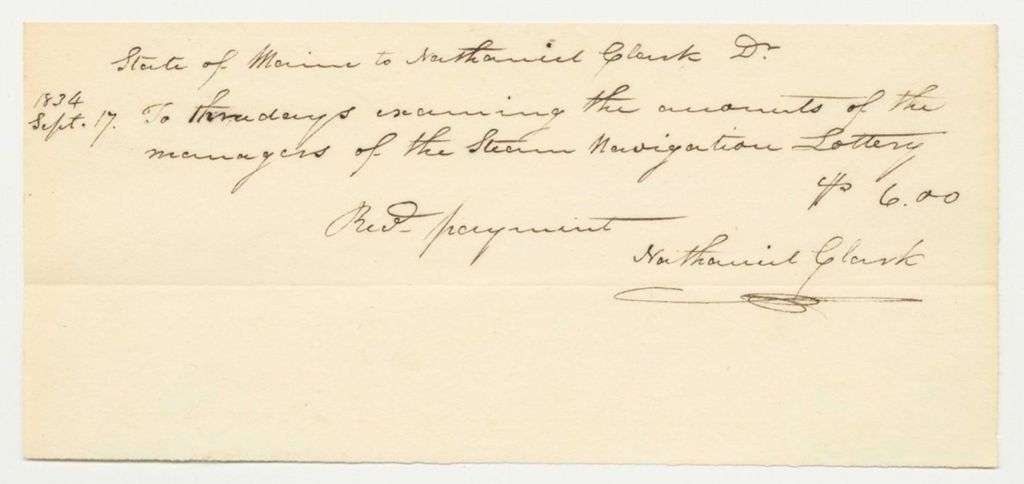 State of Maine to Nathaniel Clark Dr
1834
Sept. 17. To three days examining the accounts of the
managers of the Steam Navigation Lottery
$ 6.00
Recd payment
Nathaniel Clark